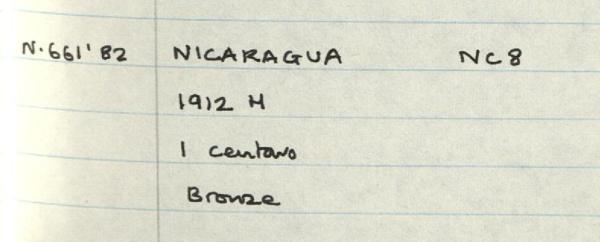 N.661'82 NICARAGUA NC8
1912 H
1 centavo
Bronze